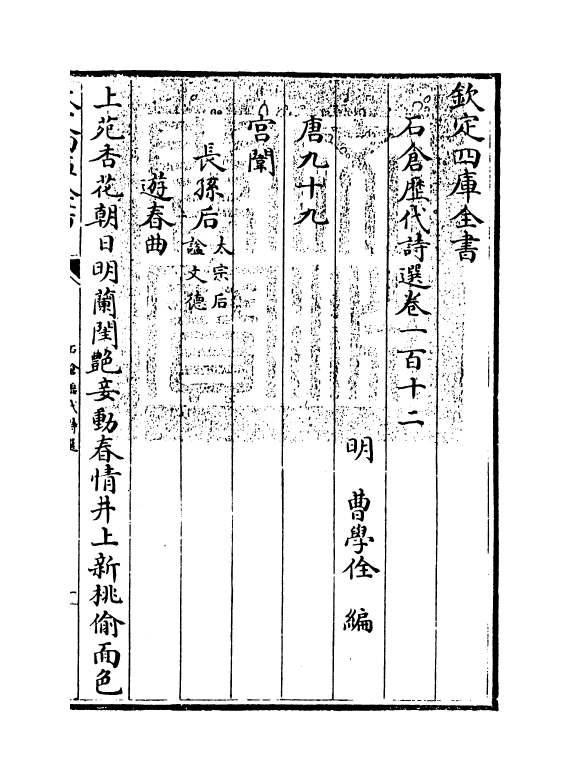 欽定四庫全書
石倉歷代詩選卷一百十二
明 曹學佺 編
唐九十九
宮闈
長孫后 太宗后
諡文德
遊春曲
上苑杏花朝日明蘭閨艷妾動春情井上新桃偷面色